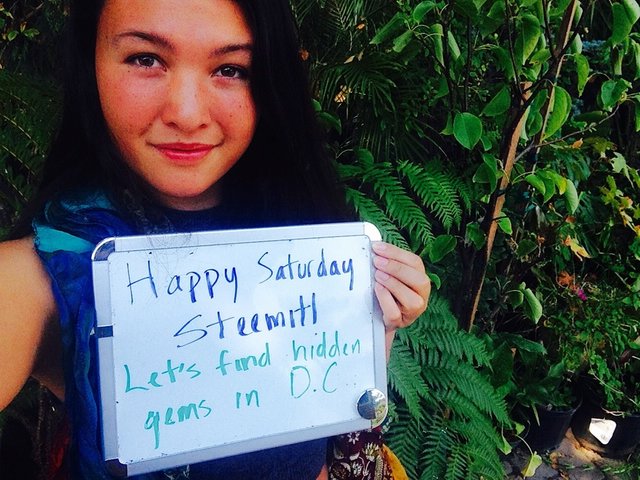 Happy Saturday
Steemit!
Let's find hidden
gems in D.C..